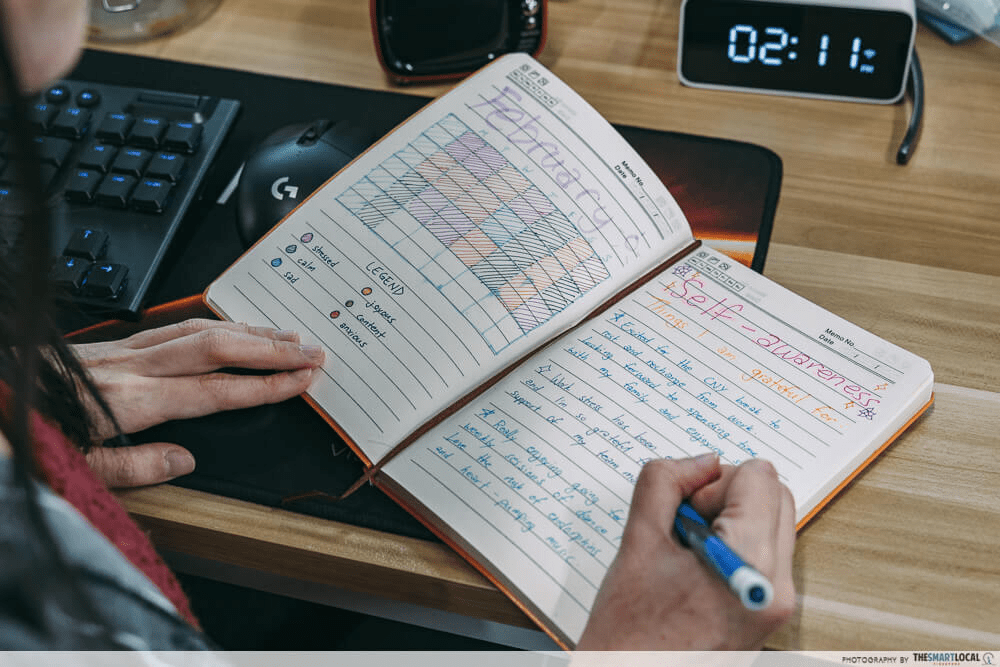 02:11
PM
G
February
Memo No.
Date / /
LEGEND
stressed
calm
sad
joyous
content
anxious
Memo No.
Date / /
Self-awareness
Things I am grateful for
Exited for the CNY break to
rest and recharge from work
looking forward to spending time
with my family and enjoying
Work stress has been
and I'm so grateful
support of my team
Really enjoying going for
weekly sessions of dance
Love the rush of endorphins
and heart-pumping music.
PHOTOGRAPHY BY THESMARTLOCAL